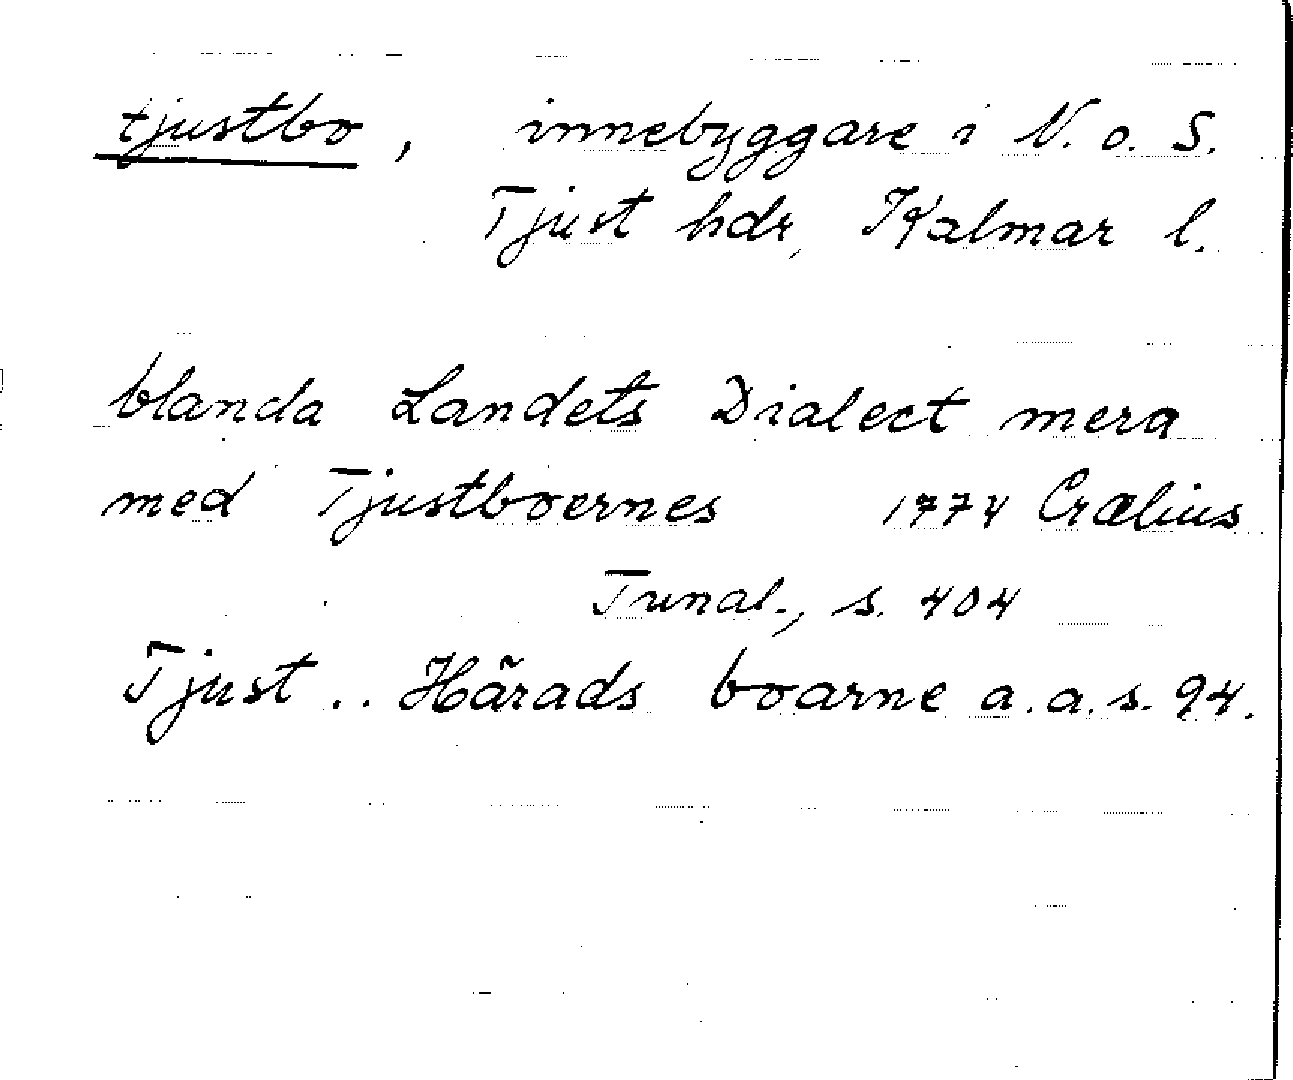 tjustbo, innebyggare i N. o. S.
Tjust hdr, Kalmar l.
blanda Landets Dialect mera
med Tjustboernes 1774 Crælius
Tunal., s. 404
Tjust .. Härads boarne a.a.s. 94.